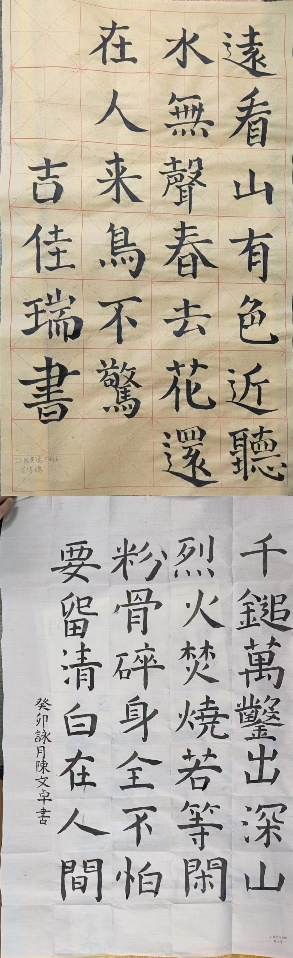 遠看山有色近聽
水無聲春去花還
在人来鳥不驚
吉佳瑞書
千鎚萬鑿出深山
烈火焚燒若等閑
粉骨碎身全不怕
要留清白在人間
癸卯詠月陳文卓書